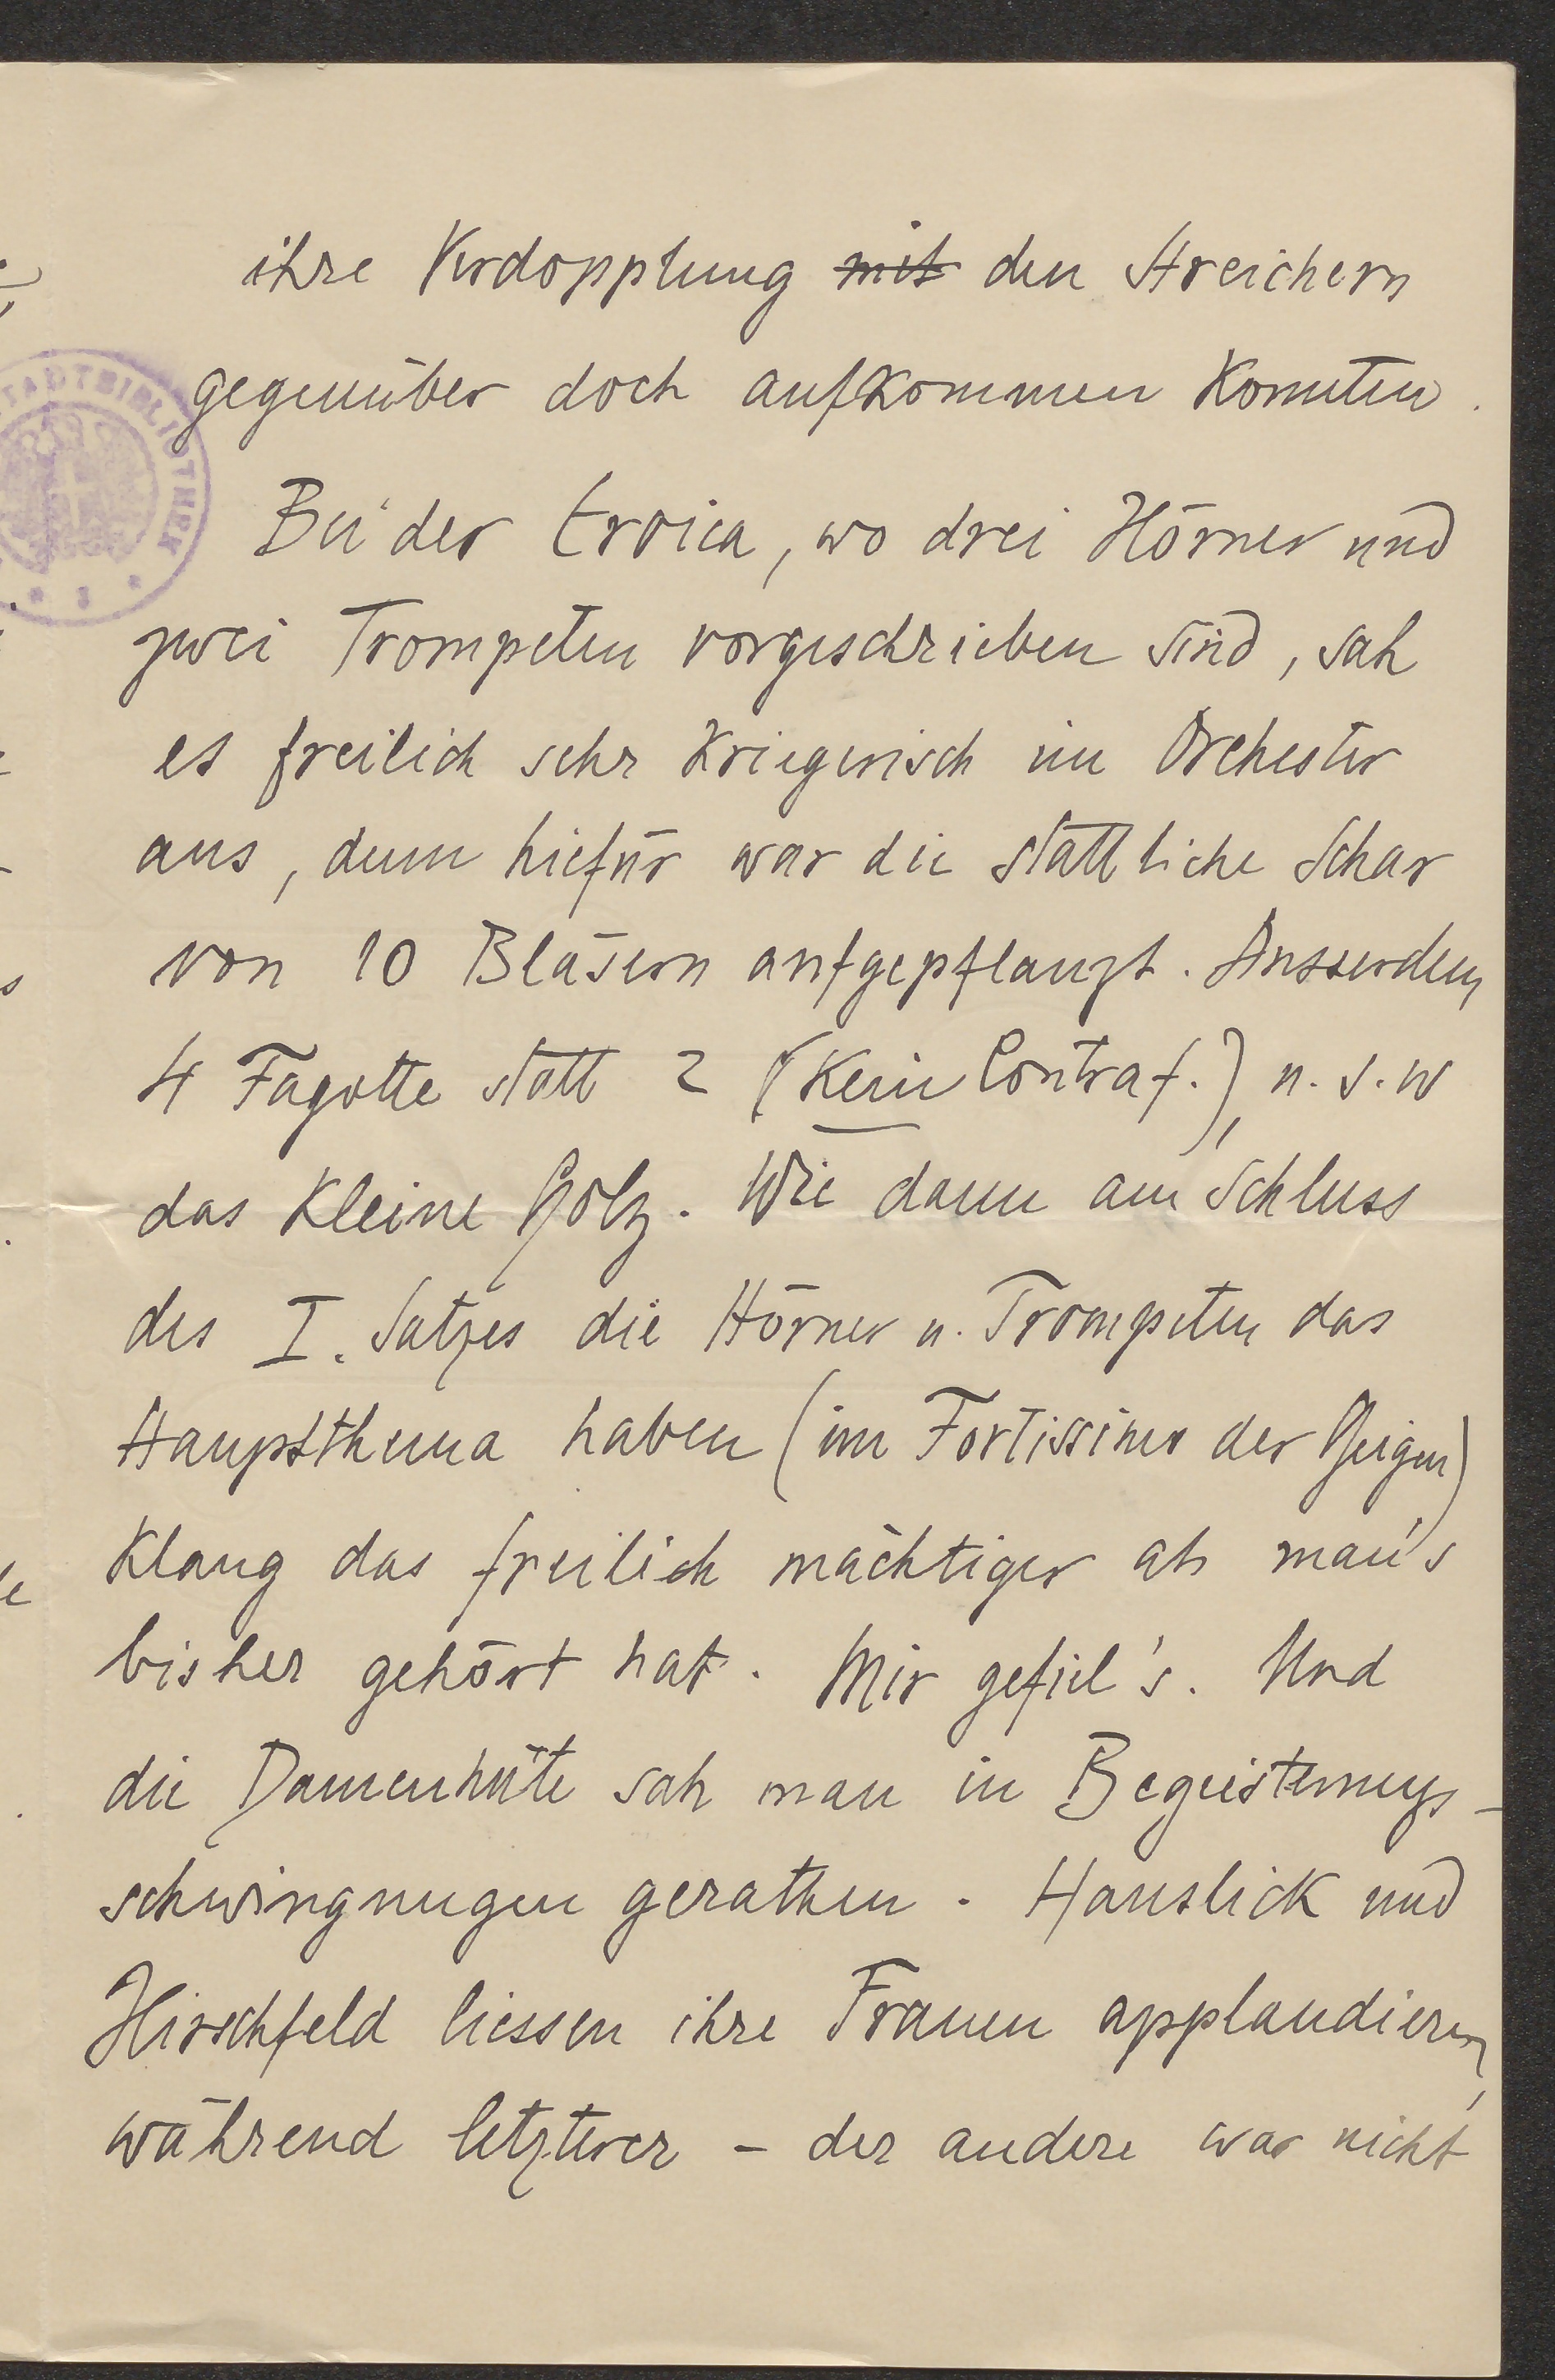 ihre Verdopplung mit den Streichern
gegenüber doch aufkommen konnten.
STADTBIBLIOTHEK
Bei der Eroica, wo drei Hörner und
zwei Trompeten vorgeschrieben sind, sah
es freilich sehr kriegerisch im Orchester
aus, denn hiefür war die stattliche Schar
von 10 Bläsern aufgepflanzt. Ausserdem
4 Fagotte statt 2 (kein Contraf.), u. s. w
das kleine Holz. Wie dann am Schluss
des I. Satzes die Hörner u. Trompeten das
Hauptthema haben (im Fortissimo der Geigen)
klang das freilich mächtiger als man's
bisher gehört hat. Mir gefiel's. Und
die Damenhüte sah man in Begeisterungs-
schwingungen gerathen. Hanslick und
Hirschfeld liessen ihre Frauen applaudieren,
während letzterer – der andere war nicht